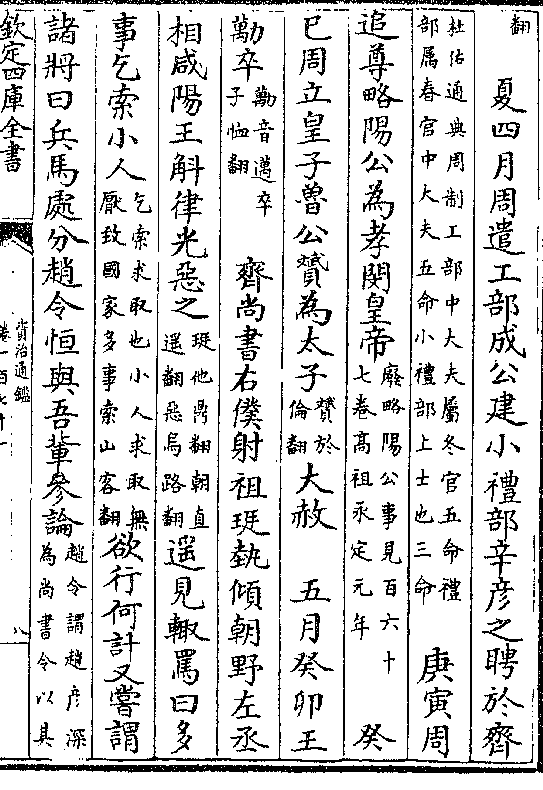 翻　夏四月周遣工部成公建小禮部辛彥之聘於齊
杜佑通典周制工部中大夫屬冬官五命禮
部屬春官中大夫五命小禮部上士也三命
庚寅周
追尊略陽公為孝閔皇帝
廢略陽公事見百六十
七卷高祖永定元年
癸
巳周立皇子魯公贇為太子
贇於
倫翻
大赦　五月癸卯王
勱卒
勱音邁卒
子恤翻
齊尚書右僕射祖珽埶傾朝野左丞
相咸陽王斛律光惡之
珽他鼎翻朝直
遥翻惡烏路翻
遥見輙罵曰多
事乞索小人
乞索求取也小人求取無
厭致國家多事索山客翻
欲行何計又嘗謂
諸將曰兵馬處分趙令恒與吾輩參論
趙令謂趙彥深
為尚書令以其
欽定四庫全書
資治通鑑
八